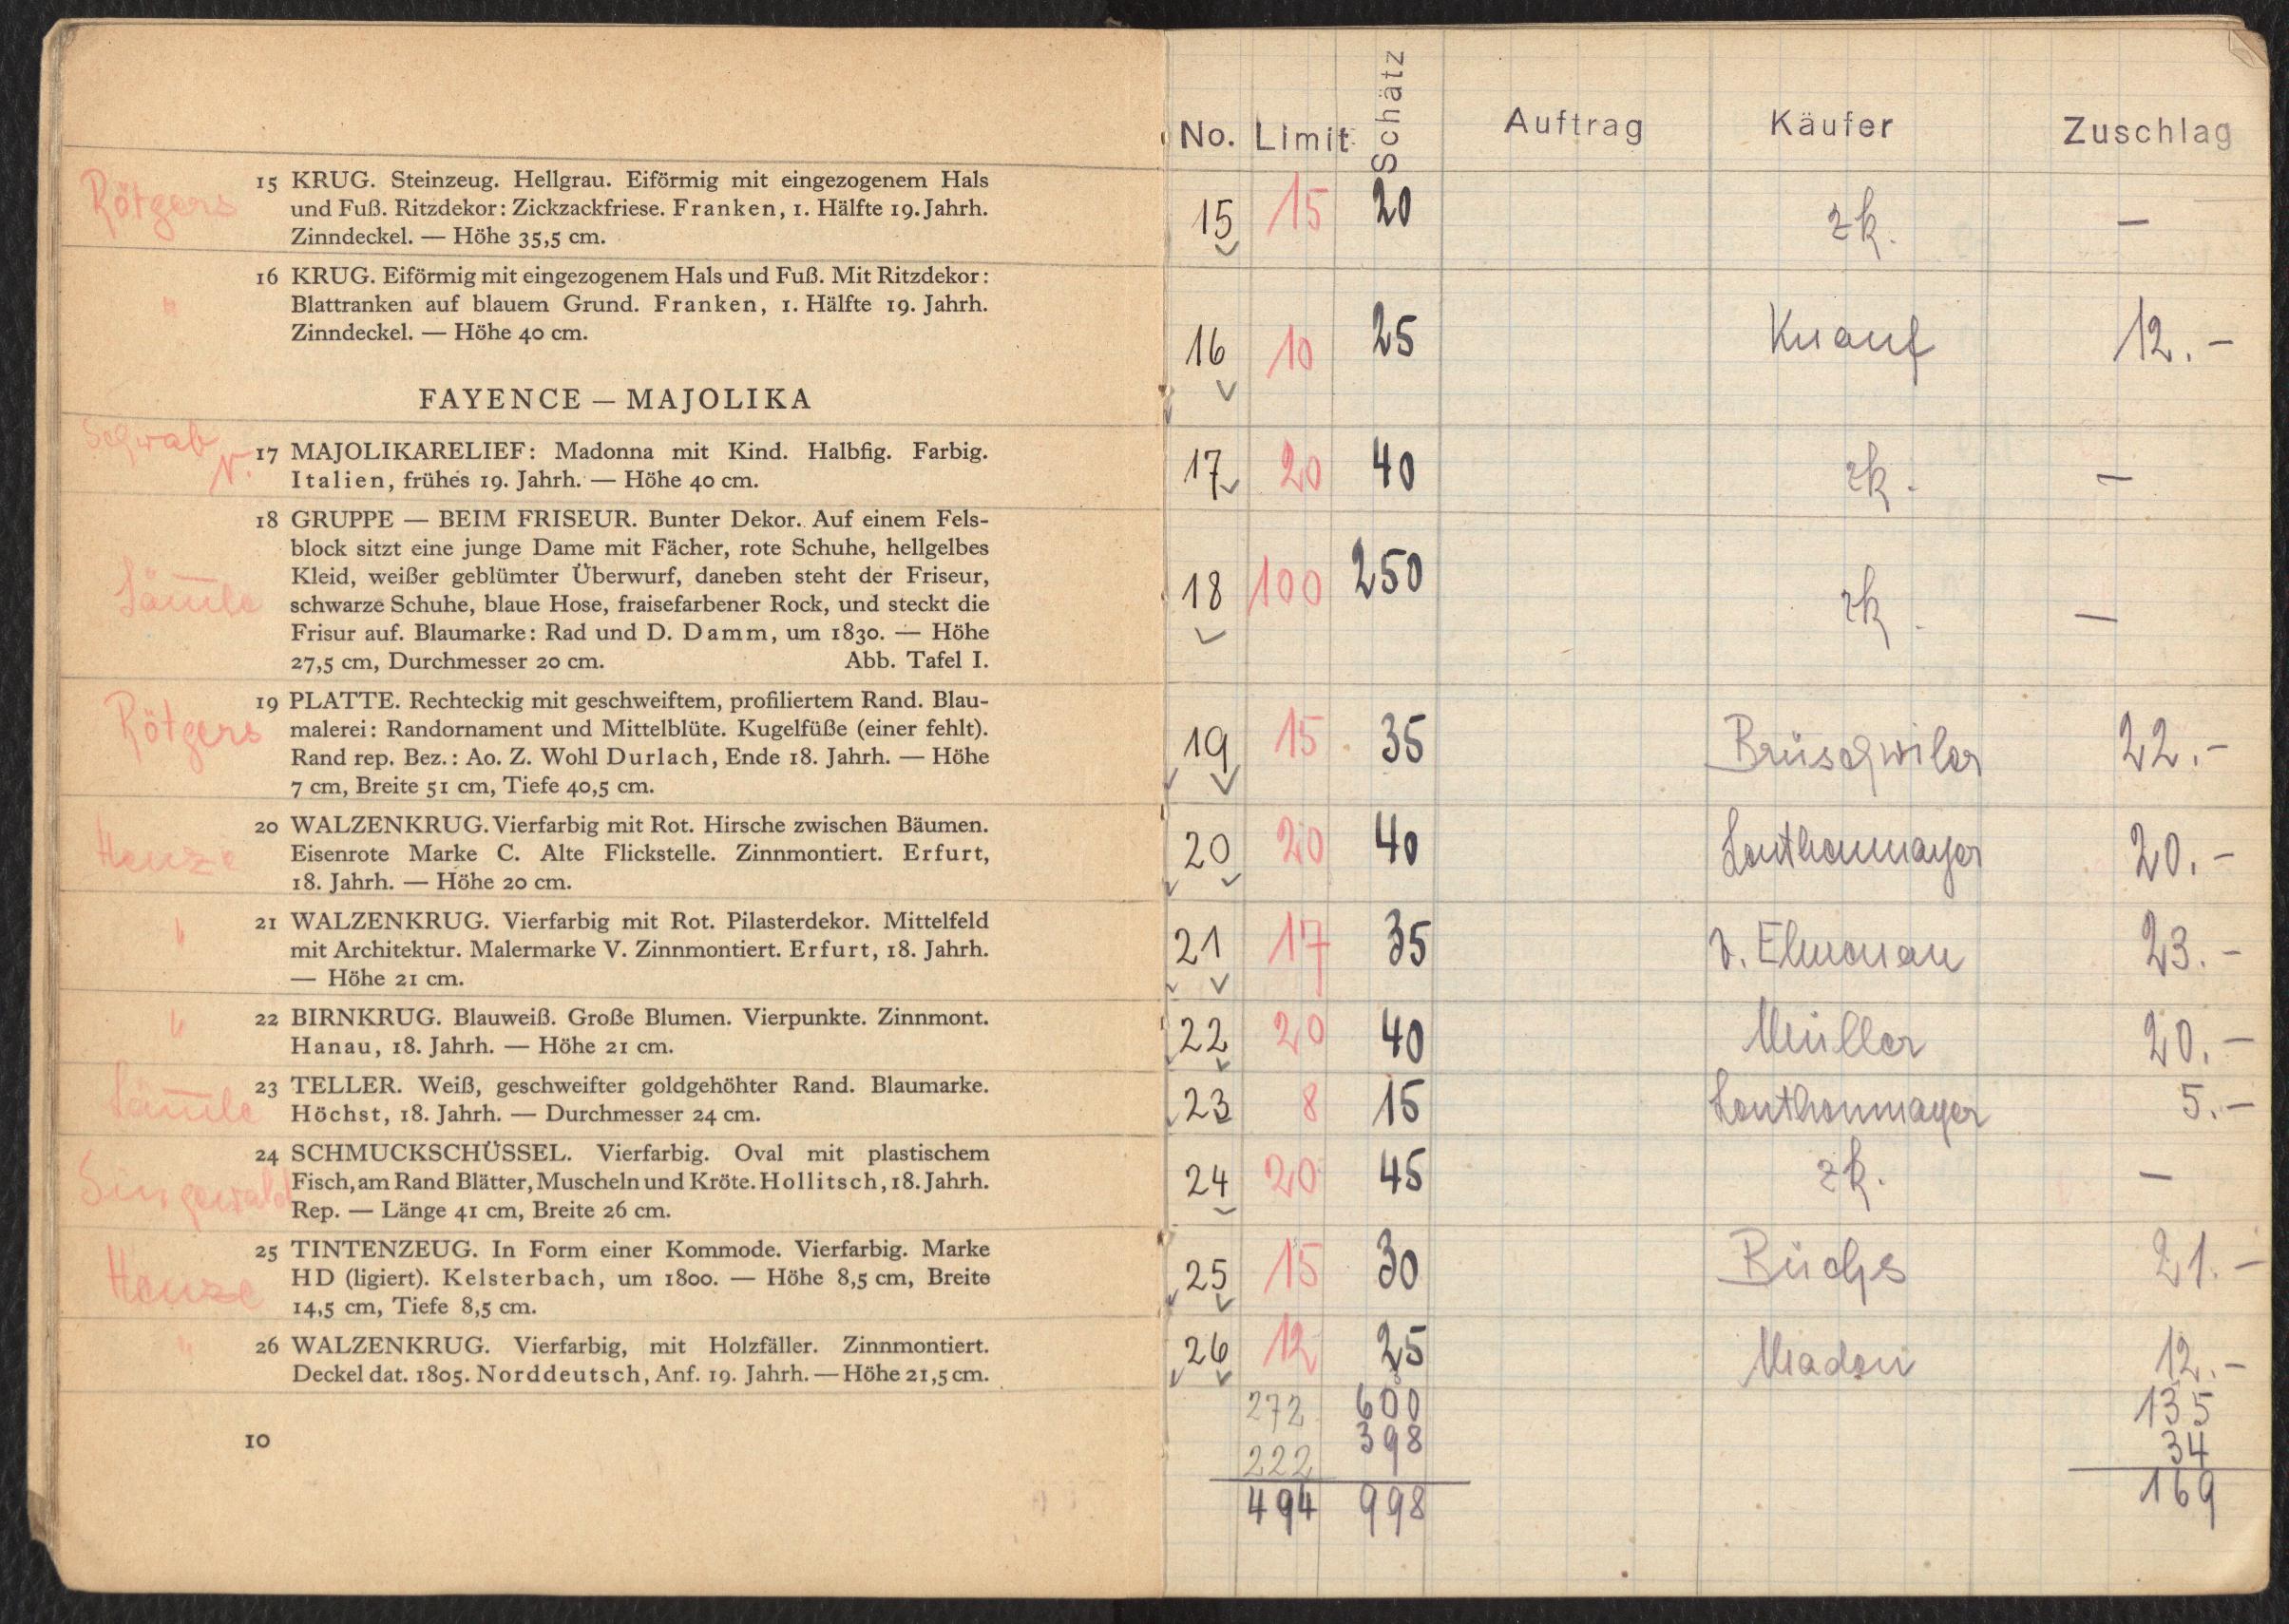 Rötgers
15 KRUG. Steinzeug. Hellgrau. Eiförmig mit eingezogenem Hals
und Fuß. Ritzdekor: Zickzackfriese. Franken, 1. Hälfte 19. Jahrh.
Zinndeckel. — Höhe 35,5 cm.
" 16 KRUG. Eiförmig mit eingezogenem Hals und Fuß. Mit Ritzdekor:
Blattranken auf blauem Grund. Franken, 1. Hälfte 19. Jahrh.
Zinndeckel. — Höhe 40 cm.
FAYENCE — MAJOLIKA
Schwab N.
17 MAJOLIKARELIEF: Madonna mit Kind. Halbfig. Farbig.
Italien, frühes 19. Jahrh. — Höhe 40 cm.
18 GRUPPE — BEIM FRISEUR. Bunter Dekor. Auf einem Fels-
block sitzt eine junge Dame mit Fächer, rote Schuhe, hellgelbes
Kleid, weißer geblümter Überwurf, daneben steht der Friseur,
schwarze Schuhe, blaue Hose, fraisefarbener Rock, und steckt die
Frisur auf. Blaumarke: Rad und D. Damm, um 1830. — Höhe
27,5 cm, Durchmesser 20 cm. Abb. Tafel I.
Rötgers
19 PLATTE. Rechteckig mit geschweiftem, profiliertem Rand. Blau-
malerei: Randornament und Mittelblüte. Kugelfüße (einer fehlt).
Rand rep. Bez.: Ao. Z. Wohl Durlach, Ende 18. Jahrh. — Höhe
7 cm, Breite 51 cm, Tiefe 40,5 cm.
Henze
20 WALZENKRUG. Vierfarbig mit Rot. Hirsche zwischen Bäumen.
Eisenrote Marke C. Alte Flickstelle. Zinnmontiert. Erfurt,
18. Jahrh. — Höhe 20 cm.
" 21 WALZENKRUG. Vierfarbig mit Rot. Pilasterdekor. Mittelfeld
mit Architektur. Malermarke V. Zinnmontiert. Erfurt, 18. Jahrh.
— Höhe 21 cm.
" 22 BIRNKRUG. Blauweiß. Große Blumen. Vierpunkte. Zinnmont.
Hanau, 18. Jahrh. — Höhe 21 cm.
23 TELLER. Weiß, geschweifter goldgehöhter Rand. Blaumarke.
Höchst, 18. Jahrh. — Durchmesser 24 cm.
Singewald
24 SCHMUCKSCHÜSSEL. Vierfarbig. Oval mit plastischem
Fisch, am Rand Blätter, Muscheln und Kröte. Hollitsch, 18. Jahrh.
Rep. — Länge 41 cm, Breite 26 cm.
Henze
25 TINTENZEUG. In Form einer Kommode. Vierfarbig. Marke
HD (ligiert). Kelsterbach, um 1800. — Höhe 8,5 cm, Breite
14,5 cm, Tiefe 8,5 cm.
" 26 WALZENKRUG. Vierfarbig, mit Holzfäller. Zinnmontiert.
Deckel dat. 1805. Norddeutsch, Anf. 19. Jahrh. — Höhe 21,5 cm.
10
No. Limit Schätz Auftrag Käufer Zuschlag
15 15 20 zk. —
16 10 25 Knauf 12.—
17 20 40 zk. —
18 100 250 zk. —
19 15 35 Brüschwiler 22.—
20 20 40 20.—
21 17 35 23.—
22 20 40 Müller 20.—
23 8 15 5.—
24 20 45 zk. —
25 15 30 Büchs 21.—
26 12 25 12.—
272 600 135
222 398 34
494 998 169